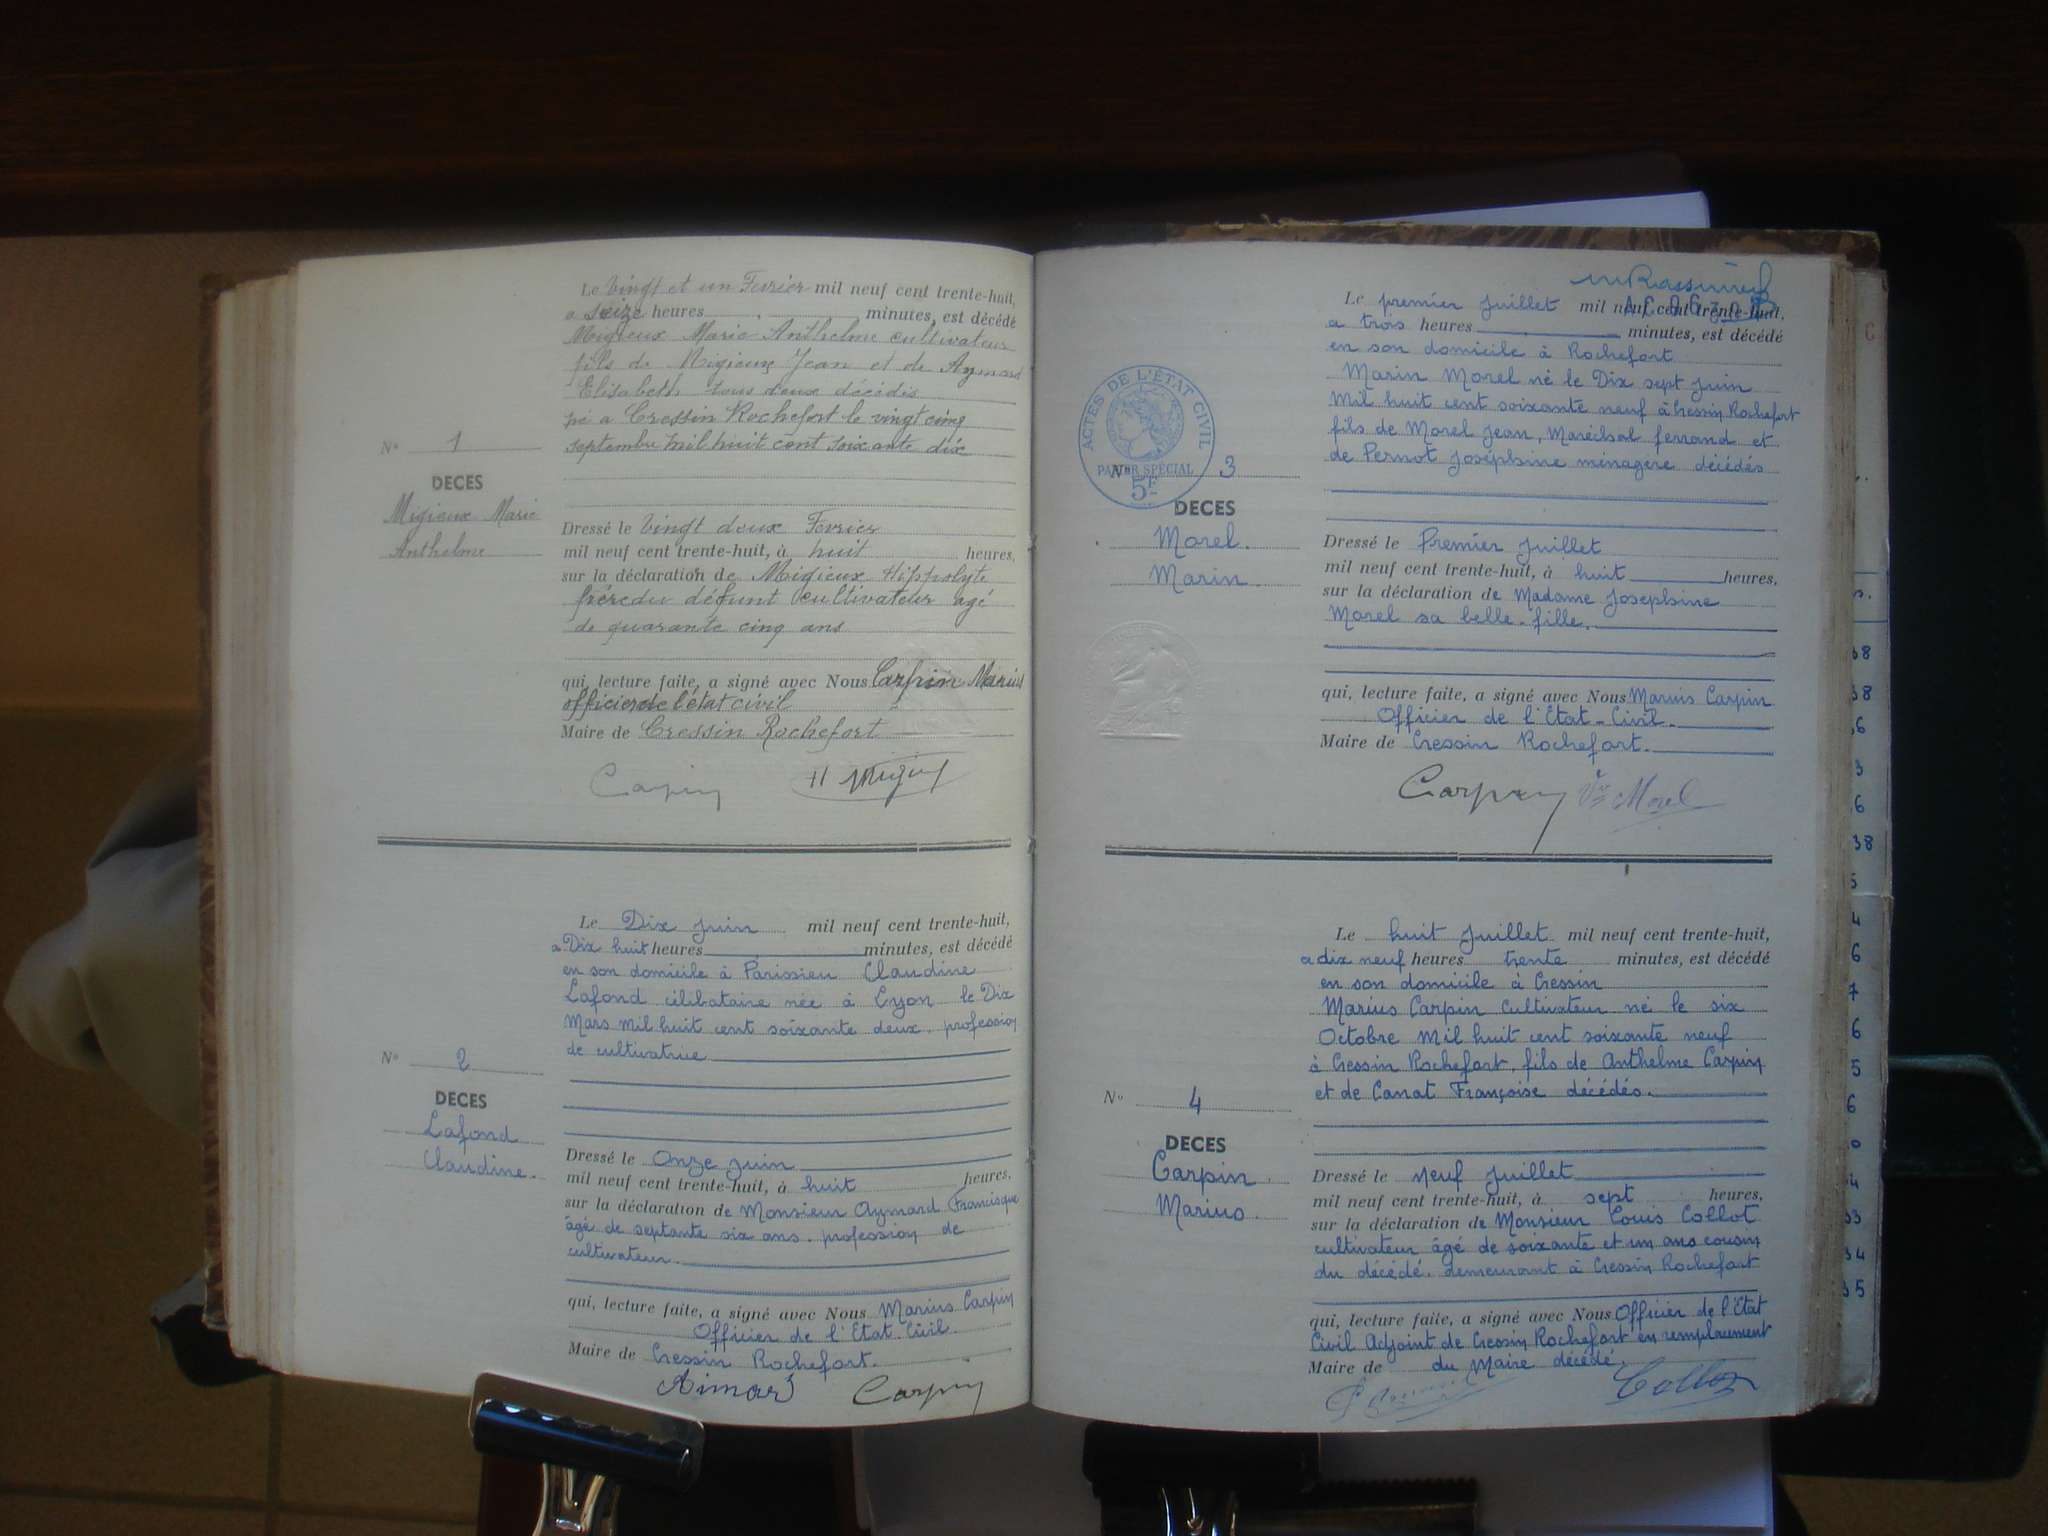 Le Vingt et un Fevrier mil neuf cent trente-huit,
a seize heures minutes, est décédé
Migieux Marie Anthelme cultivateur
fils de Migieux Jean et de Aymard
Elisabeth tous deux décédés
né a Cressin Rochefort le vingt cinq
septembre mil huit cent soixante dix
No 1
DECES
Migieux Marie
Anthelme
Dressé le Vingt deux Fevrier
mil neuf cent trente-huit, à huit heures,
sur la déclaration de Migieux Hippolyte
frère du défunt cultivateur agé
de quarante cinq ans
qui, lecture faite, a signé avec Nous Carpin Marius
officier de l'état civil
Maire de Cressin Rochefort
Carpin H Migieux
Le Dix juin mil neuf cent trente-huit,
a Dix huit heures minutes, est décédé
en son domicile à Parissieu Claudine
Lafond célibataire née à Lyon le Dix
Mars mil huit cent soixante deux. profession
de cultivatrice
No 2
DECES
Lafond
Claudine.
Dressé le Onze juin
mil neuf cent trente-huit, à huit heures,
sur la déclaration de Monsieur Aymard Francisque
âgé de septante six ans. profession de
cultivateur.
qui, lecture faite, a signé avec Nous Marius Carpin
Officier de l'Etat Civil.
Maire de Cressin Rochefort.
Aimar Carpin
Le premier Juillet mil neuf cent trente-huit,
a trois heures minutes, est décédé
en son domicile à Rochefort
Marin Morel né le Dix sept juin
Mil huit cent soixante neuf à Cressin Rochefort
fils de Morel Jean, Maréchal ferrand et
de Pernot Joséphine ménagère décédés
ACTES DE L'ÉTAT CIVIL
PAPIER SPÉCIAL
5F
No 3
DECES
Morel.
Marin.
Dressé le Premier Juillet
mil neuf cent trente-huit, à huit heures,
sur la déclaration de Madame Josephine
Morel sa belle-fille.
qui, lecture faite, a signé avec Nous Marius Carpin
Officier de l'Etat-Civil.
Maire de Cressin Rochefort.
Carpin Vve Morel
Le huit Juillet mil neuf cent trente-huit,
a dix neuf heures trente minutes, est décédé
en son domicile à Cressin
Marius Carpin Cultivateur né le six
Octobre Mil huit cent soixante neuf
à Cressin Rochefort, fils de Anthelme Carpin
et de Canat Françoise décédés.
No 4
DECES
Carpin.
Marius.
Dressé le Neuf Juillet
mil neuf cent trente-huit, à sept heures,
sur la déclaration de Monsieur Louis Collot
cultivateur âgé de soixante et un ans cousin
du décédé. demeurant à Cressin Rochefort
qui, lecture faite, a signé avec Nous Officier de l'Etat
Civil Adjoint de Cressin Rochefort en remplacement
Maire de du Maire décédé.
Collot